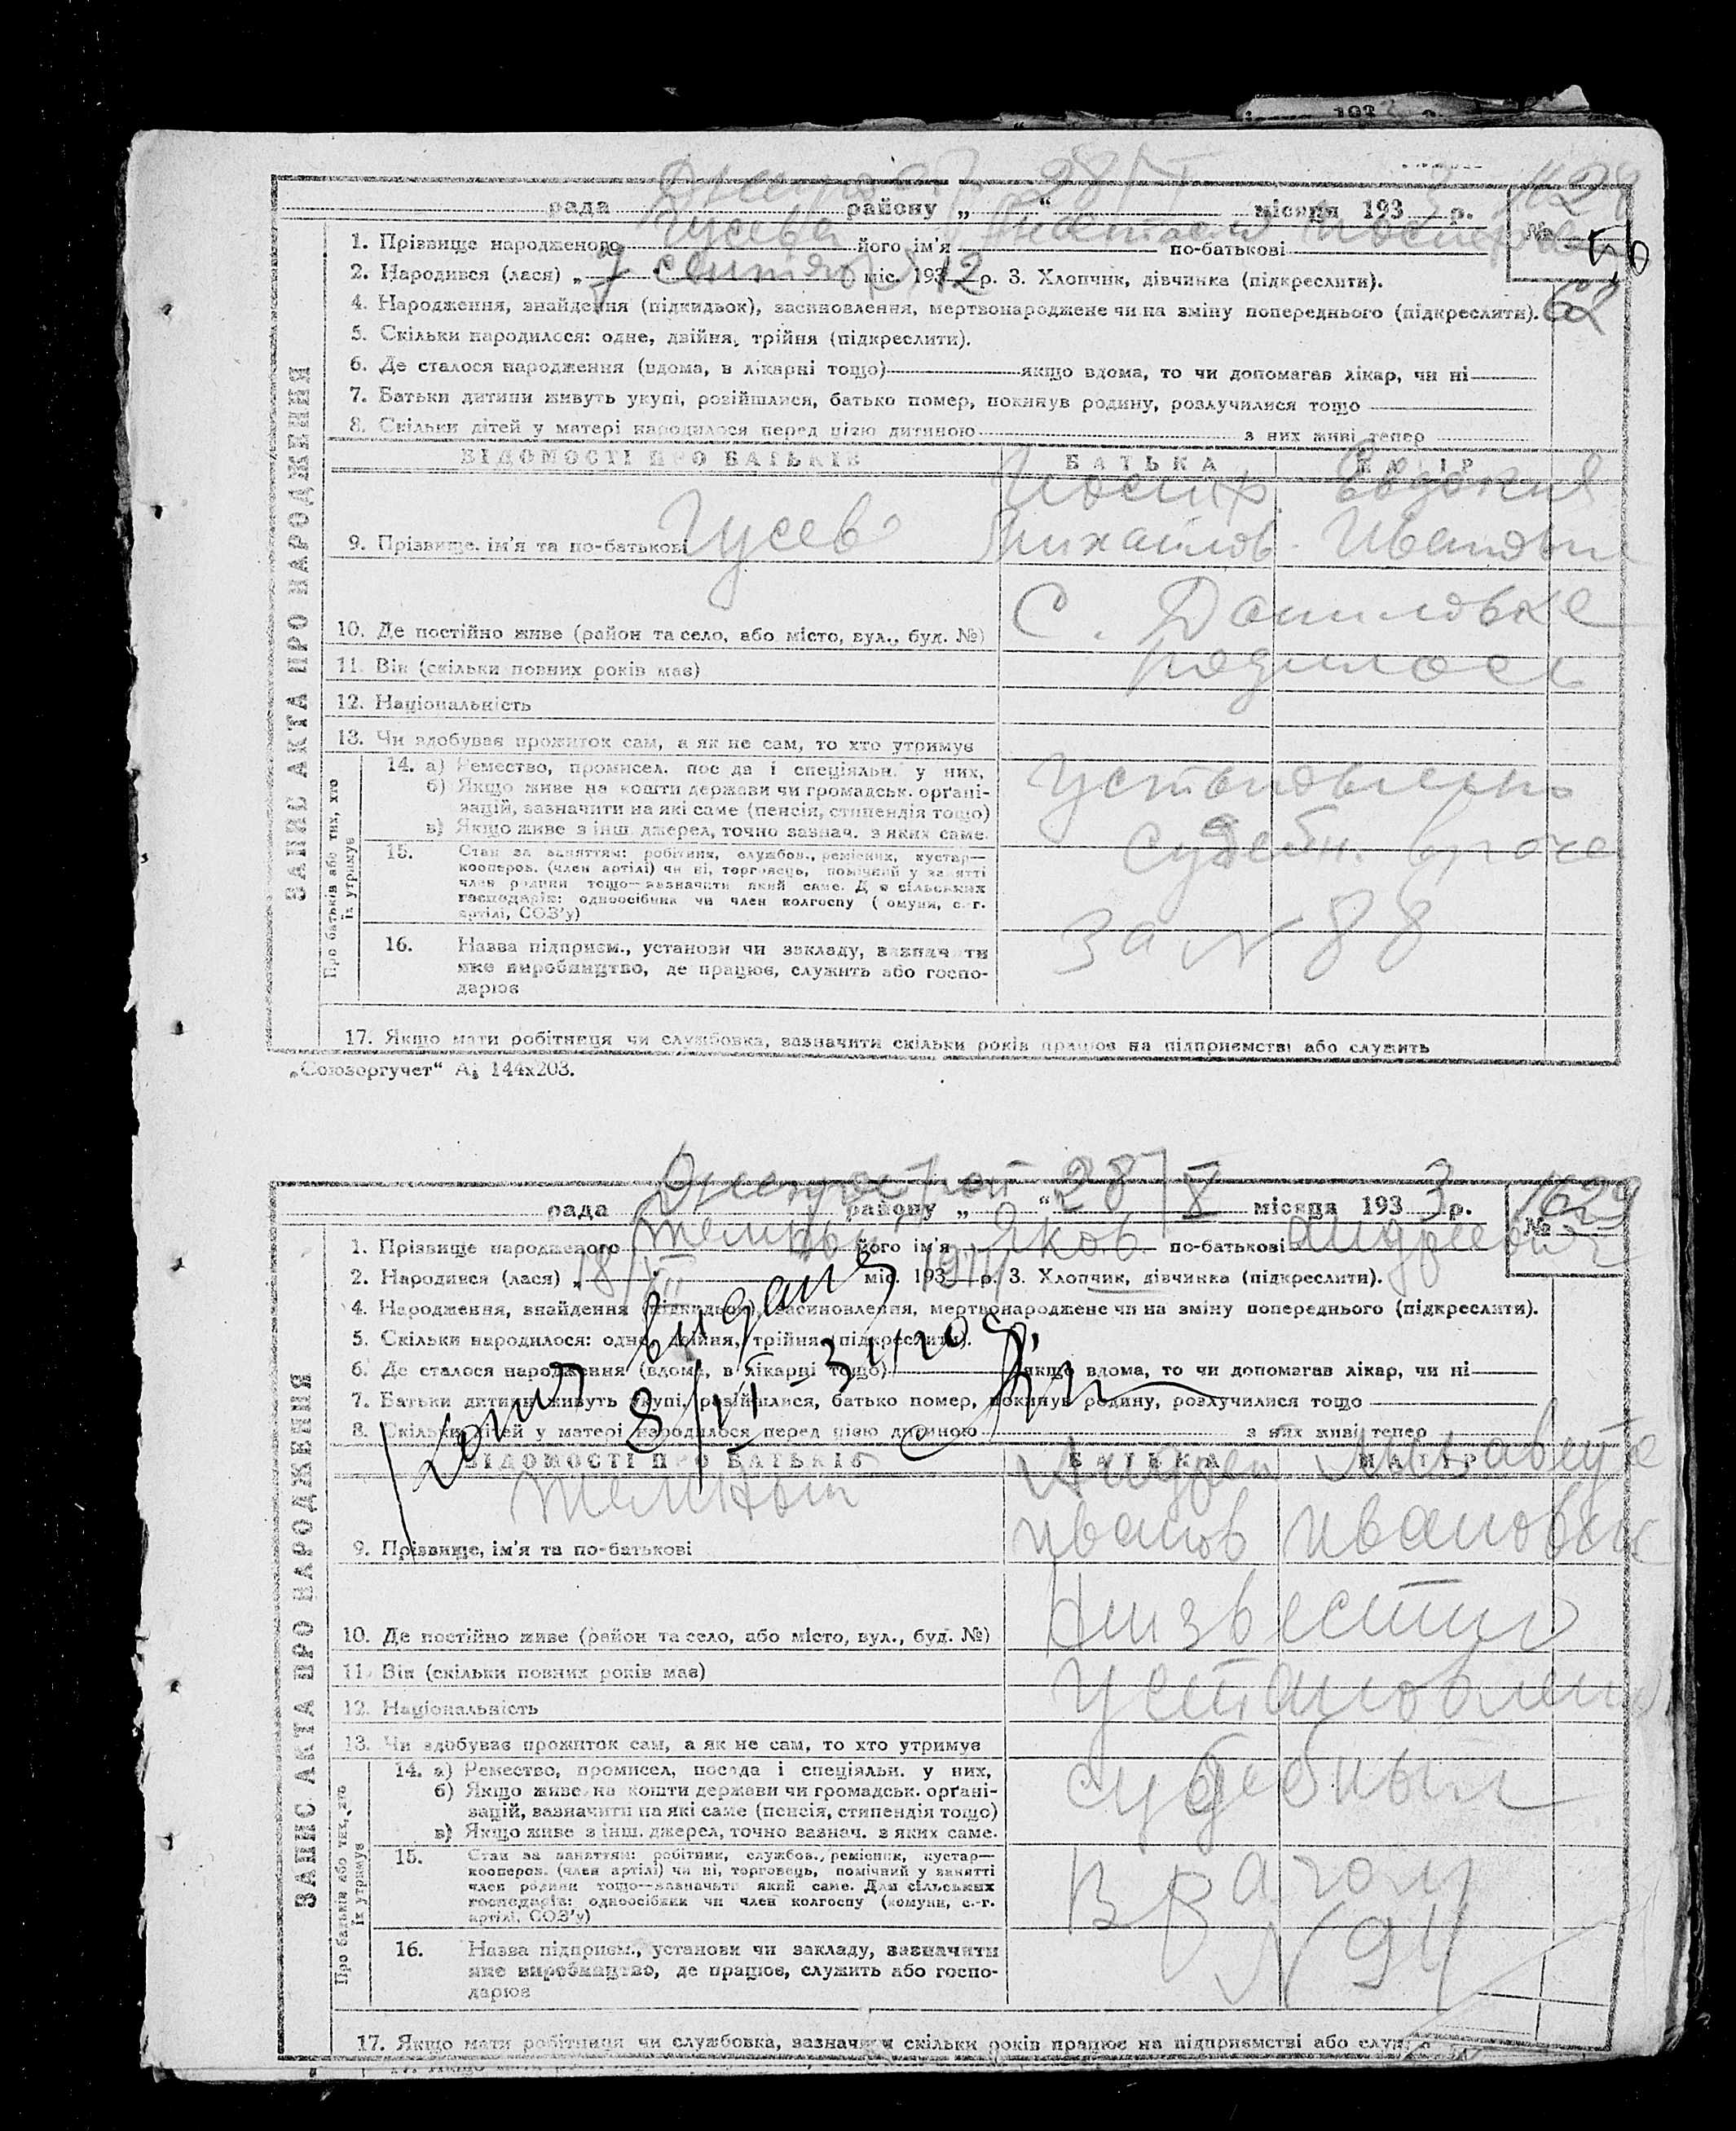 1628
рада району „ “ 28/ місяця 193 3 р. №
1. Прізвище народженого Гусева його ім'я по-батькові
2. Народився (лася) „ 7 міс. 1912 р. 3. Хлопчик, дівчинка (підкреслити).
4. Народження, знайдення (підкидьок), засиновлення, мертвонароджене чи на зміну попереднього (підкреслити).
5. Скільки народилося: одне, двійня, трійня (підкреслити).
6. Де сталося народження (вдома, в лікарні тощо) якщо вдома, то чи допомагав лікар, чи ні
7. Батьки дитини живуть укупі, розійшлися, батько помер, покинув родину, розлучилися тощо
8. Скільки дітей у матері народилося перед цією дитиною з них живі тепер
ЗАПИС АКТА ПРО НАРОДЖЕННЯ
ВІДОМОСТІ ПРО БАТЬКІВ БАТЬКА МАТІР
Иосиф Евдокия
9. Прізвище, ім'я та по-батькові Гусев Михайлов. Ивановна
10. Де постійно живе (район та село, або місто, вул., буд. №) С. Даниловке
11. Вік (скільки повних років має) родилась
12. Національність
13. Чи здобуває прожиток сам, а як не сам, то хто утримує
Про батьків або тих, хто їх утримує
14. а) Ремество, промисел, посада і спеціяльн. у них,
б) Якщо живе на кошти держави чи громадськ. органі-
зацій, зазначити на які саме (пенсія, стипендія тощо)
в) Якщо живе з інш. джерел, точно зазнач. з яких саме.
Установлено
судебн. враче
15. Стан за заняттям: робітник, службов., ремісник, кустар—
кооперов. (член артілі) чи ні, торговець, помічний у занятті
член родини тощо—зазначити який саме. Для сільських
господарів: одноосібник чи член колгоспу (комуни, с.-г.
артілі, СОЗ'у)
за № 88
16. Назва підприєм., установи чи закладу, зазначити
яке виробництво, де працює, служить або госпо-
дарює
17. Якщо мати робітниця чи службовка, зазначити скільки років працює на підприємстві або служить
„Союзоргучет“ А₅ 144х203.
1629
рада району „ “ 28/X місяця 193 3 р. №
1. Прізвище народженого його ім'я Яков по-батькові Андреевич
2. Народився (лася) „ 18/VIII міс. 1911 р. 3. Хлопчик, дівчинка (підкреслити).
4. Народження, знайдення (підкидьок), засиновлення, мертвонароджене чи на зміну попереднього (підкреслити).
5. Скільки народилося: одне, двійня, трійня (підкреслити).
6. Де сталося народження (вдома, в лікарні тощо) якщо вдома, то чи допомагав лікар, чи ні
7. Батьки дитини живуть укупі, розійшлися, батько помер, покинув родину, розлучилися тощо
8. Скільки дітей у матері народилося перед цією дитиною з них живі тепер
ЗАПИС АКТА ПРО НАРОДЖЕННЯ
ВІДОМОСТІ ПРО БАТЬКІВ БАТЬКА МАТІР
Андрей
9. Прізвище, ім'я та по-батькові Иванов Ивановна
10. Де постійно живе (район та село, або місто, вул., буд. №)
11. Вік (скільки повних років має) Установлено
12. Національність
13. Чи здобуває прожиток сам, а як не сам, то хто утримує
Про батьків або тих, хто їх утримує
14. а) Ремество, промисел, посада і спеціяльн. у них,
б) Якщо живе на кошти держави чи громадськ. органі-
зацій, зазначити на які саме (пенсія, стипендія тощо)
в) Якщо живе з інш. джерел, точно зазнач. з яких саме.
судебным
15. Стан за заняттям: робітник, службов., ремісник, кустар—
кооперов. (член артілі) чи ні, торговець, помічний у занятті
член родини тощо—зазначити який саме. Для сільських
господарів: одноосібник чи член колгоспу (комуни, с.-г.
артілі, СОЗ'у)
№ 94
16. Назва підприєм., установи чи закладу, зазначити
яке виробництво, де працює, служить або госпо-
дарює
17. Якщо мати робітниця чи службовка, зазначити скільки років працює на підприємстві або служить